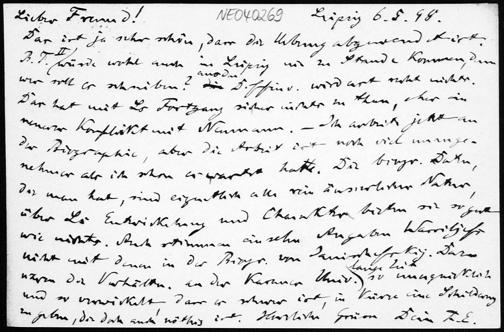 Lieber Freund! NEO40269 Leipzig 6.5.98.
Das ist ja sehr schön, dass die abgewendet ist.
B. T. II würde wohl auch in Leipzig nie zu Stande kommen, denn
wer soll es schreiben? wird erst recht nichts.
Das hat mit Fortgang sicher nichts zu thun, aber
neuerer Konflikt mit Neumann. — Ich arbeite jetzt an
der Biographie, aber die Arbeit ist noch viel unange-
nehmer als ich schon erwartet hatte. Die biogr. Daten,
die man hat, sind eigentlich alle rein äusserlicher Natur,
über Entwickelung und Charakter bieten sie so gut
wie nichts. Auch stimmen einzelne Angaben
nicht mit denen in der Biogr. von Dazu
waren die Verhältn. an der Univ. lange Zeit so unerquicklich
und so verwickelt dass es schwer ist, in Kürze eine Schilderung
zu geben, die doch auch nöthig ist. Herzliche Grüsse Dein F. E.